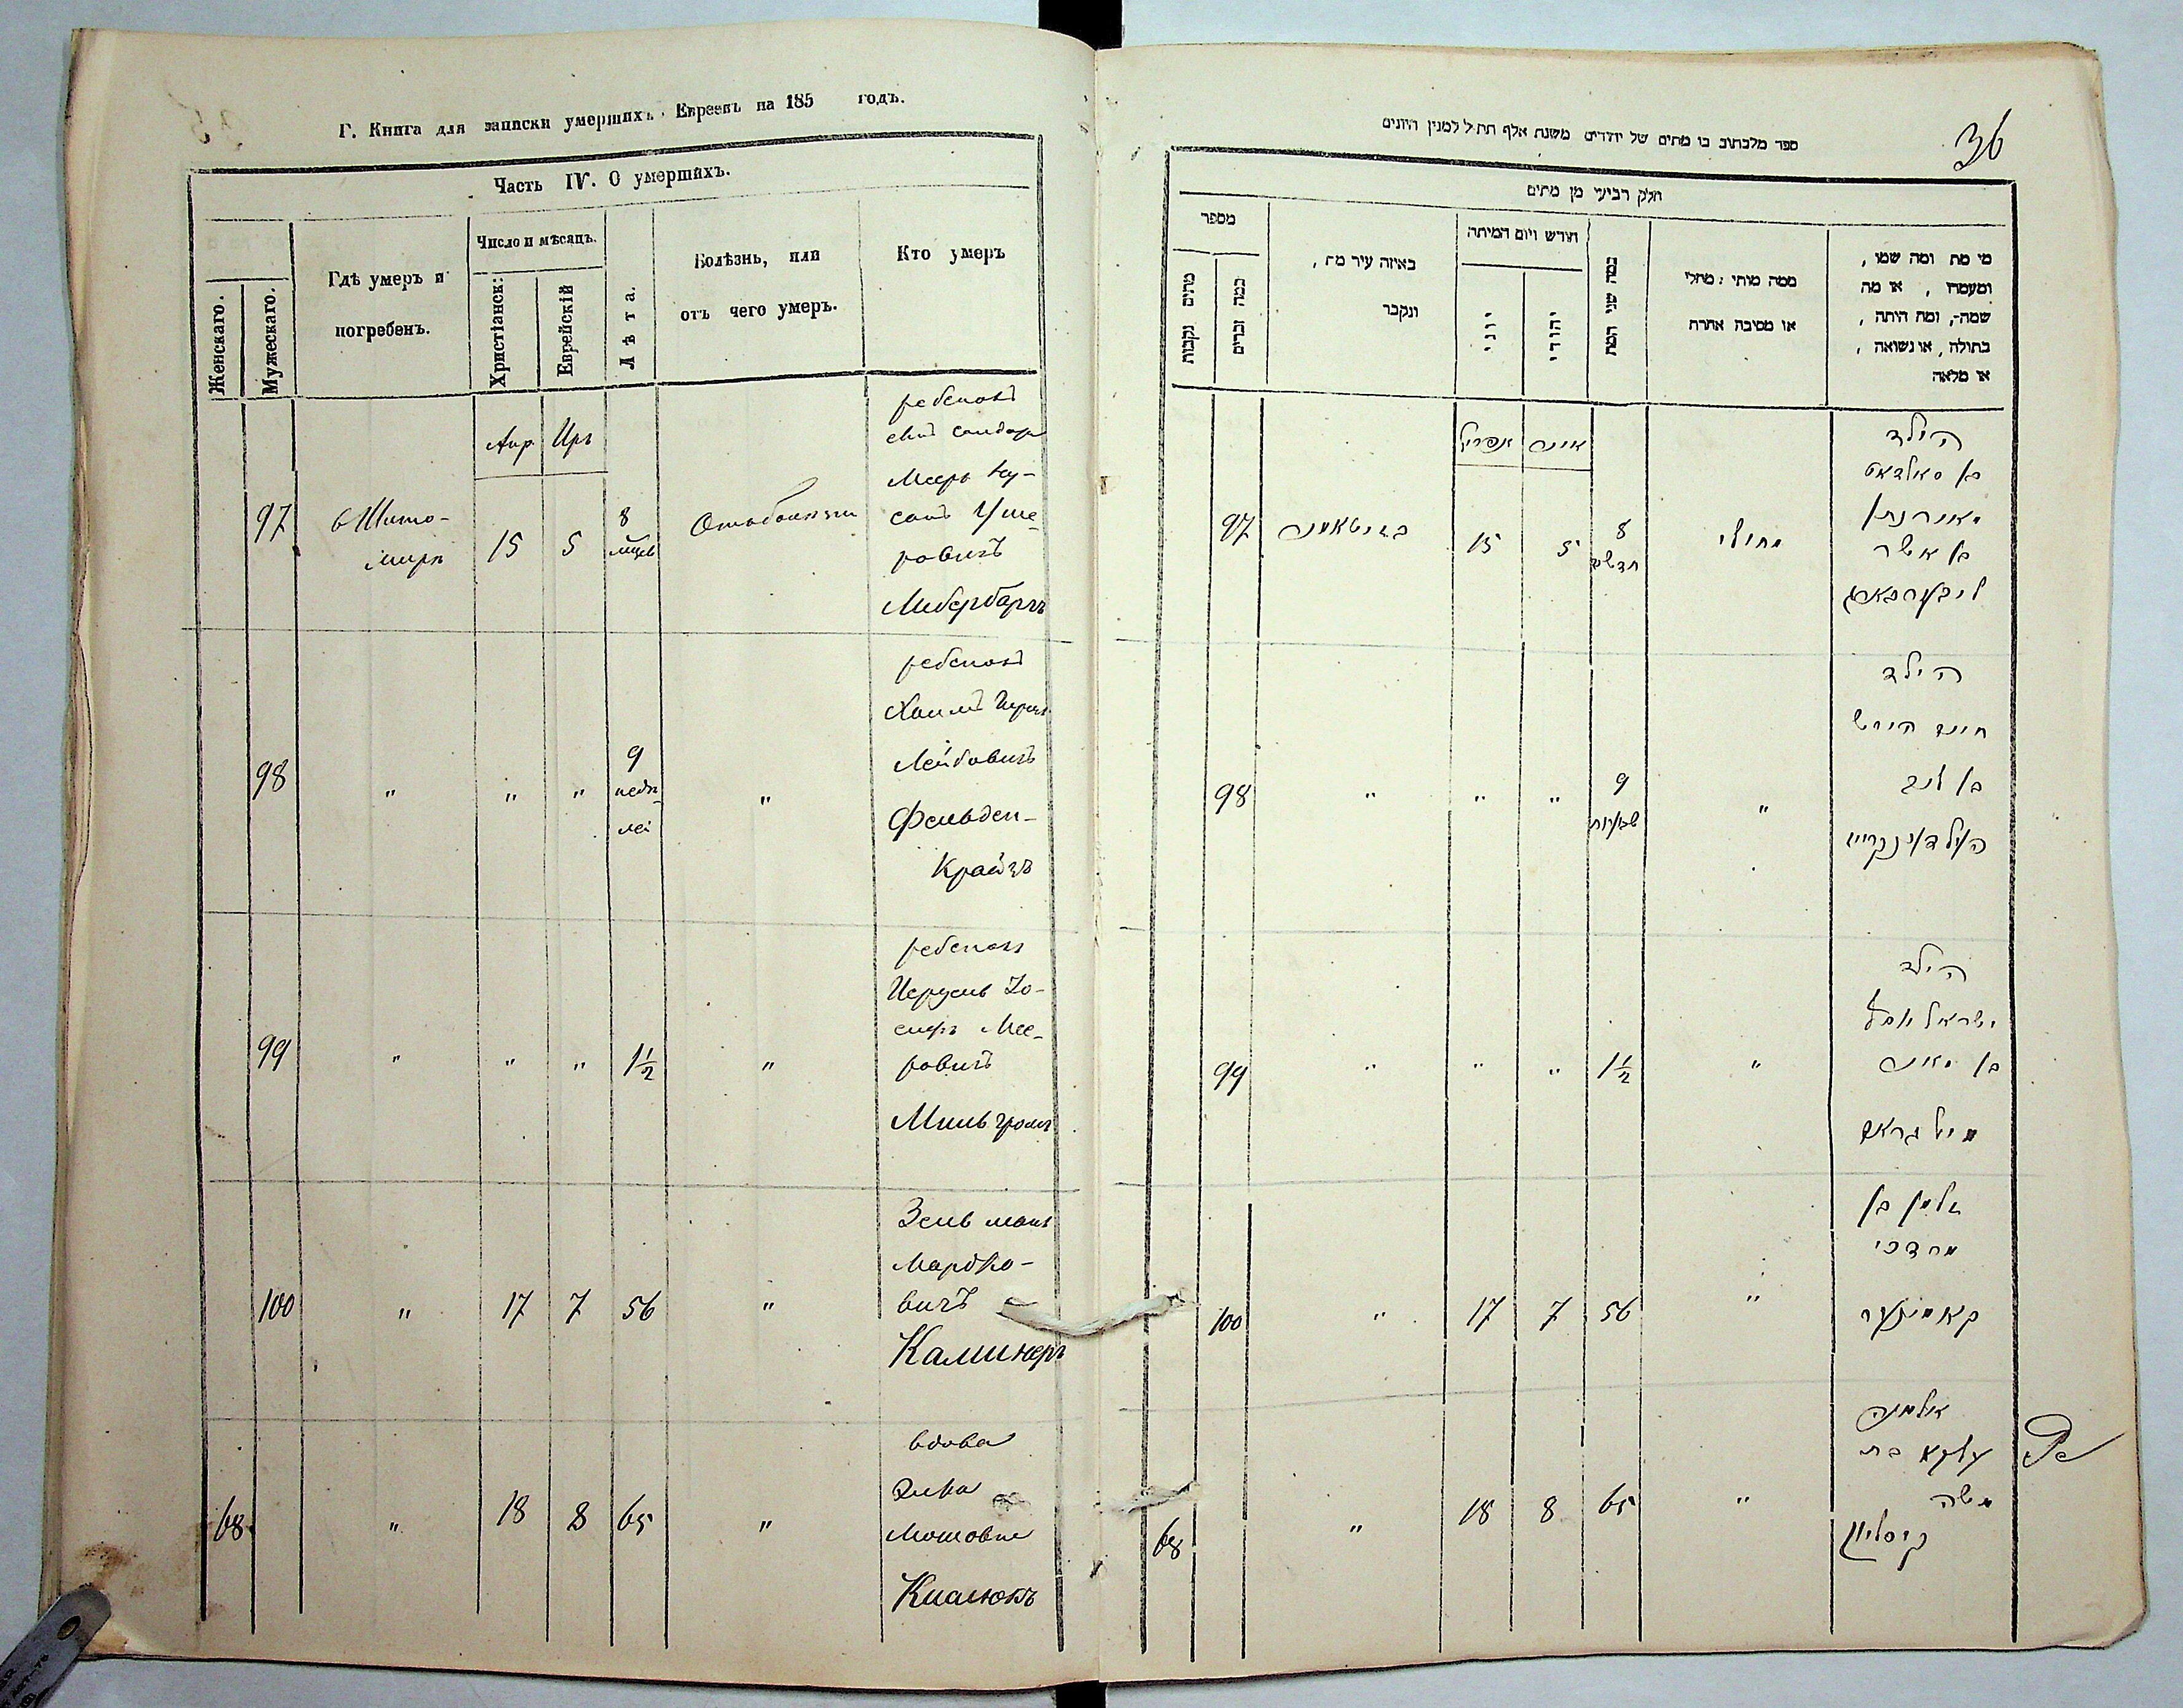 Г. Книга для записки умершихъ Евреевъ на 185 годъ.
Часть IV. О умершихъ.
Женскаго.
Мужескаго.
Гдѣ умеръ и
погребенъ.
Число и мѣсяцъ.
Христіанск:
Еврейскій
Лѣта.
Болѣзнь, или
отъ чего умеръ.
Кто умеръ
Апр
Иръ
97
в Жито-
мирѣ
15
5
8
мцев
ребенокъ
Мееръ Ну-
санъ Уше-
ровичъ
Либербаргъ
98
"
"
"
9
недѣ-
лей
"
ребенокъ
Хаимъ Гершъ
Лейбовичъ
Фельден-
Крайзъ
99
"
"
"
1½
"
ребенокъ
Исруель Ио-
сифъ Мее-
ровичъ
Мильгромъ
100
"
17
7
56
"
Зельманъ
Мордко-
вичъ
Каминеръ
68
"
18
8
65
"
вдова
Элка
Мошовна
36
ספר מלכתוב בו מתים של יהודים משנת אלף תת״ל למנין היונים
חלק רביעי מן מתים
מספר
מתים נקבות
כמה זכרים
באיזה עיר מת,
ונקבר
חודש ויום המיתה
יוני
יהודי
כמה שני המת
ממה מותי: מחלי
או מסיבה אחרת
מי מת ומה שמו,
ומעמדו, או מה
שמה, ומה היתה,
בתולה, או נשואה,
או מלאה
אפריל
אייר
97
בזיטאמיר
15
5
8
חדשים
מחולי
הילד
בן סאלדאט
מאיר נתן
בן אשר
ליבערבארג
98
"
"
"
9
שבועות
"
הילד
חיים הירש
בן ליב
99
"
"
"
1½
"
הילד
ישראל יוסף
בן מאיר
מילגראם
100
"
17
7
56
"
זלמן בן
מרדכי
קאמינער
68
"
18
8
65
"
אלמנה
עלקא בת
משה